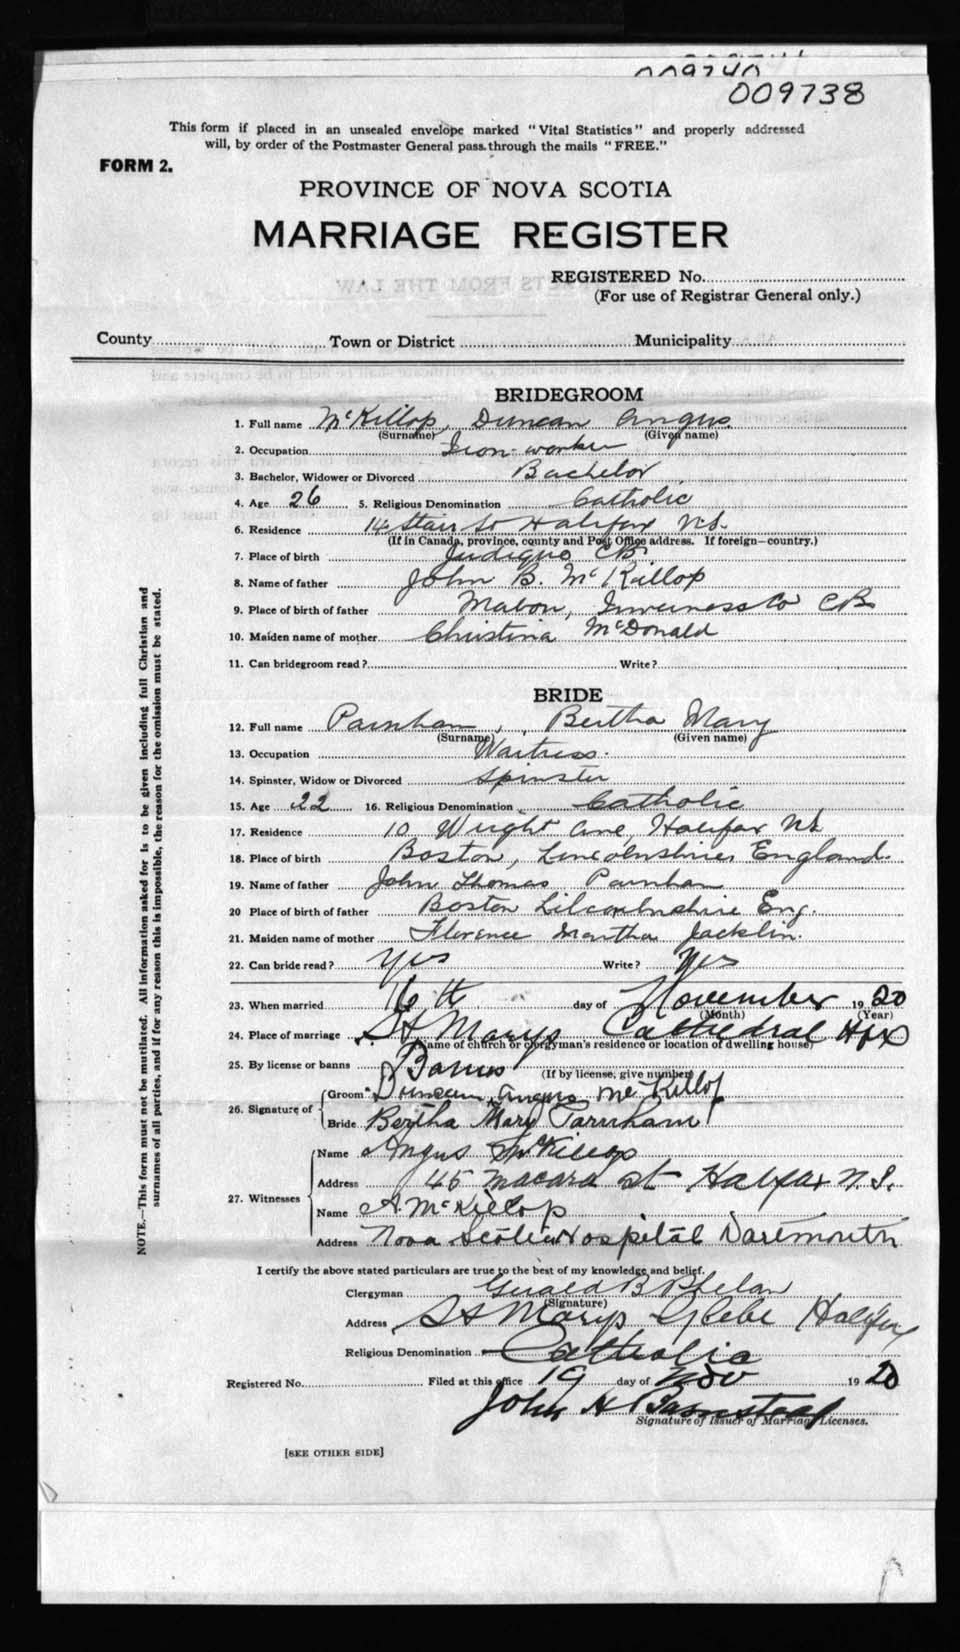 009740
009738
This form if placed in an unsealed envelope marked "Vital Statistics" and properly addressed
will, by order of the Postmaster General pass through the mails "FREE."
FORM 2.
PROVINCE OF NOVA SCOTIA
MARRIAGE REGISTER
REGISTERED No.
(For use of Registrar General only.)
County Town or District Municipality
BRIDEGROOM
1. Full name McKillop, Duncan Angus
(Surname) (Given name)
2. Occupation Iron-worker
3. Bachelor, Widower or Divorced Bachelor
4. Age 26 5. Religious Denomination Catholic
6. Residence 14 Stairs St Halifax N.S.
(If in Canada, province, county and Post Office address. If foreign—country.)
7. Place of birth Judique C.B.
8. Name of father John B. McKillop
9. Place of birth of father Mabou, Inverness Co C.B.
10. Maiden name of mother Christina McDonald
11. Can bridegroom read? Write?
BRIDE
12. Full name Parnham, Bertha Mary
(Surname) (Given name)
13. Occupation Waitress.
14. Spinster, Widow or Divorced Spinster
15. Age 22 16. Religious Denomination Catholic
17. Residence 10 Wright Ave, Halifax N.S.
18. Place of birth Boston, England.
19. Name of father John Thomas Parnham
20 Place of birth of father Boston Eng.
21. Maiden name of mother Florence Martha Jacklin.
22. Can bride read? Yes Write? Yes
23. When married 16th day of November 1920
(Month) (Year)
24. Place of marriage St Marys Cathedral Hfx
(Name of church or clergyman's residence or location of dwelling house)
25. By license or banns Banns
(If by license, give number)
26. Signature of Groom Duncan Angus McKillop
Bride Bertha Mary Parnham
27. Witnesses Name Angus McKillop
Address 45 Macara St Halifax N.S.
Name A. McKillop
Address Nova Scotia Hospital Dartmouth
I certify the above stated particulars are true to the best of my knowledge and belief.
Clergyman Gerald B Phelan
(Signature)
Address St Marys Glebe Halifax
Religious Denomination Catholic
Registered No. Filed at this office 19 day of Nov 1920
John H Barnstead
Signature of Issuer of Marriage Licenses.
[SEE OTHER SIDE]
NOTE.—This form must not be mutilated. All information asked for is to be given including full Christian and
surnames of all parties, and if for any reason this is impossible, the reason for the omission must be stated.